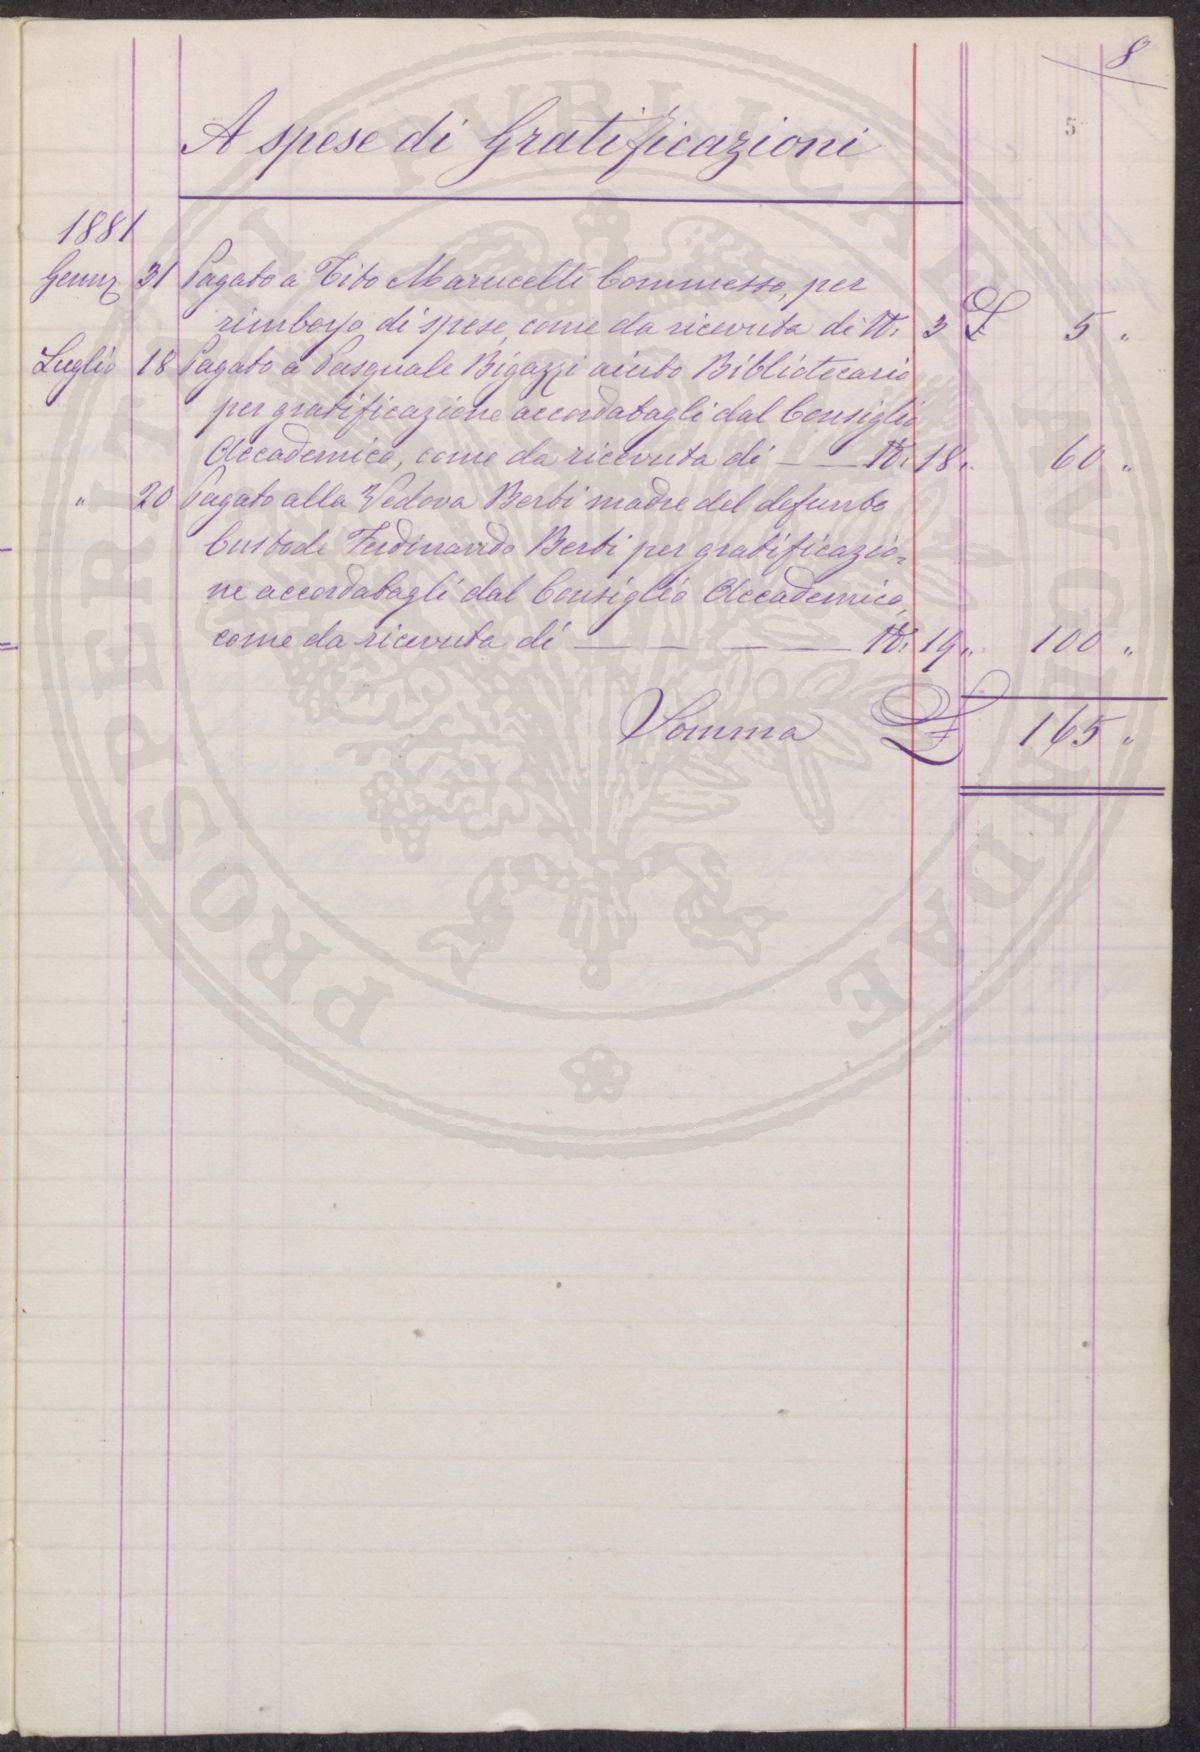 8
5
A spese di Gratificazioni
1881
Genn.º 31 Pagato a Tito Marucelli Commesso, per
rimborso di spese, come da ricevuta di N: 3 £ 5 „
Luglio 18 Pagato a Pasquale Bigazzi aiuto Bibliotecario
per gratificazione accordatagli dal Consiglio
Accademico, come da ricevuta di — — N: 18 „ 60 „
„ 20 Pagato alla Vedova Berti madre del defunto
Custode Ferdinando Berti per gratificazio=
ne accordatagli dal Consiglio Accademico,
come da ricevuta di — — — — N: 19 „ 100 „
Somma £ 165 „
PROSPERITATI PVBLICAE AVGENDAE